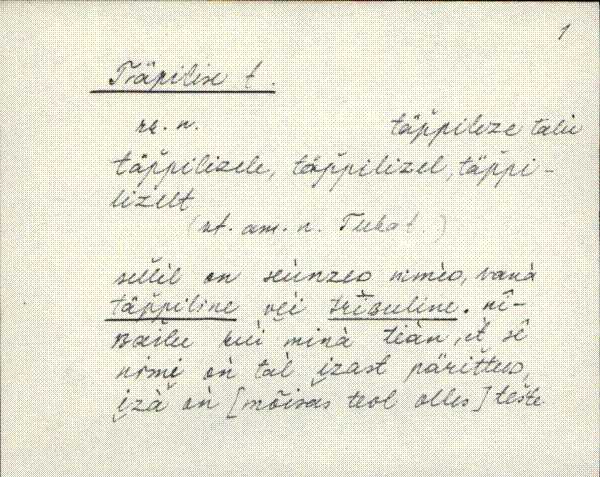 1
Träpilise t.
rz. n. täp̆pilize talu
täp̆pilizele, täp̆pilizel, täp̆pi-
lizelt
(rt. am. n. Tukat.)
sellel on nimèᴅ, vanà
täp̆piline vei triʙuline. nî-
ʙal̆lu kui minà tiàn, et sê
nimi on̆ tal izast pärit̆tuᴅ,
izà on̆ [mõisas teol olles] teste